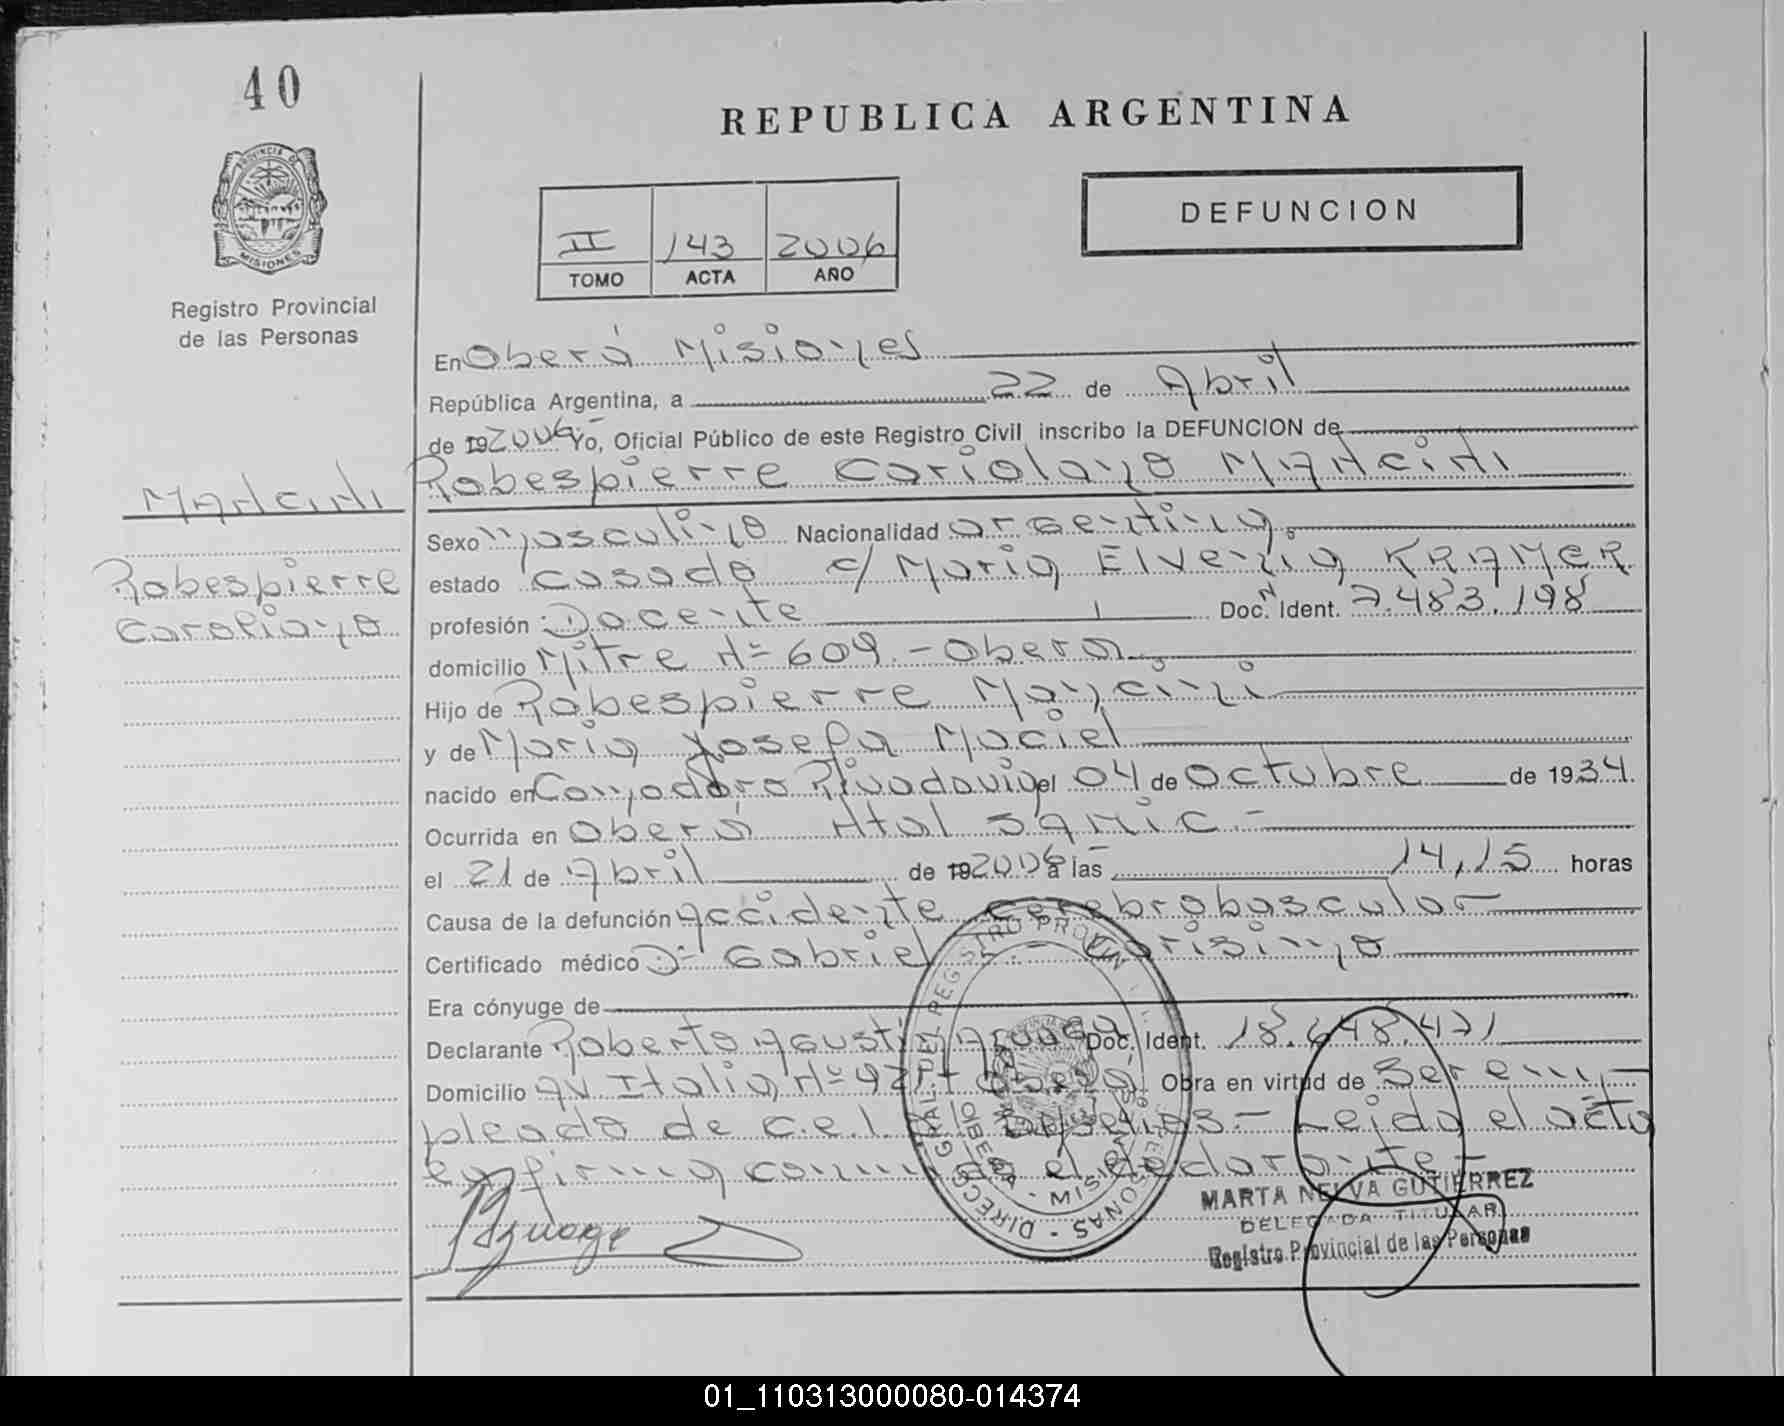 40
REPUBLICA ARGENTINA
PROVINCIA DE
MISIONES
DEFUNCION
II 143 2006
TOMO ACTA AÑO
Registro Provincial
de las Personas
En Oberá Misiones
República Argentina, a 22 de Abril
de 19 2006 Yo, Oficial Público de este Registro Civil inscribo la DEFUNCION de
Robespierre Coriolano MANCINI
MANCINI
Robespierre
Coroliano
Sexo Masculino Nacionalidad argentina
estado casado c/ Maria Elvenia KRAMER
profesión Docente Doc. N Ident. 7.483.198
domicilio Mitre Nº 609.- Oberá
Hijo de Robespierre Mancini
y de Maria Josefa Maciel
nacido en Comodoro Rivadavia el 04 de Octubre de 1934.
Ocurrida en Oberá Htal SAMIC -
el 21 de Abril de 19 2006 a las 14,15 horas
Causa de la defunción Accidente cerebrobascular
Certificado médico Dr Gabriel
Era cónyuge de
Declarante Roberto Agustin Doc. Ident. 18.648.471
Domicilio Av. Italia Nº Obra en virtud de Ser em-
pleado de C.e.l. Lejda el acta
la firma el declarante -
MARTA NELVA GUTIERREZ
DELEGADA TITULAR
Registro Provincial de las Personas
DIRECC GRAL DEL REGISTRO PROVIN PERSONAS
OBERA - MISIONES
01_110313000080-014374